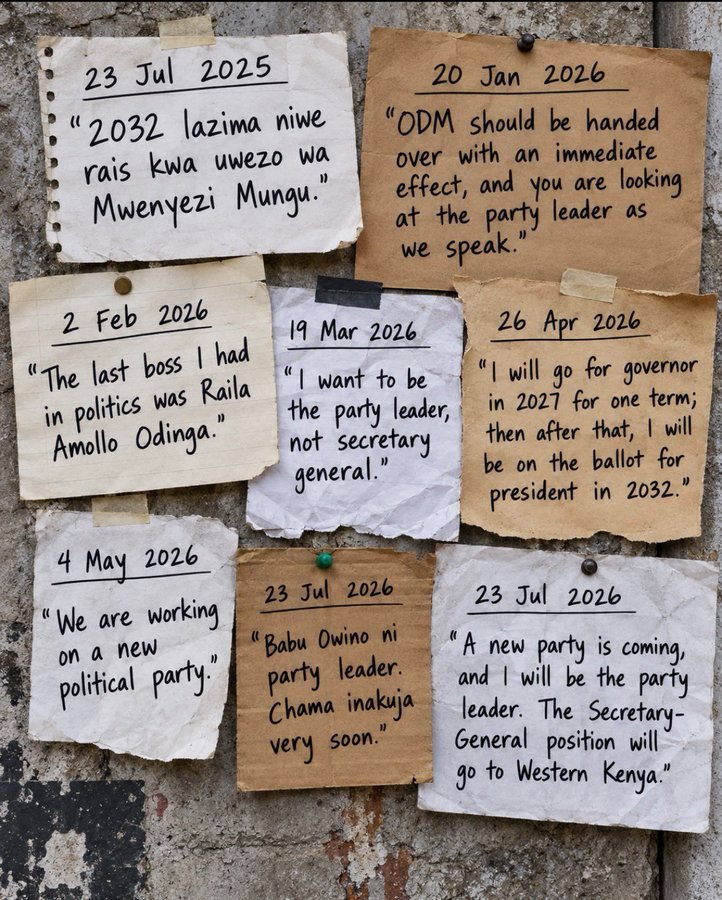 23 Jul 2025
"2032 lazima niwe
rais kwa uwezo wa
Mwenyezi Mungu."
20 Jan 2026
"ODM should be handed
over with an immediate
effect, and you are looking
at the party leader as
we speak."
2 Feb 2026
"The last boss I had
in politics was Raila
Amollo Odinga."
19 Mar 2026
"I want to be
the party leader,
not secretary
general."
26 Apr 2026
"I will go for governor
in 2027 for one term;
then after that, I will
be on the ballot for
president in 2032."
4 May 2026
"We are working
on a new
political party."
23 Jul 2026
"Babu Owino ni
party leader.
Chama inakuja
very soon."
23 Jul 2026
"A new party is coming,
and I will be the party
leader. The Secretary-
General position will
go to Western Kenya."